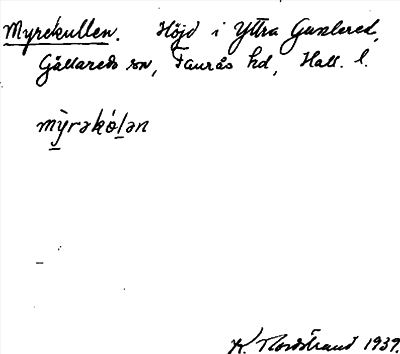 Myrekullen. Höjd i Yttra Gunlered,
Gällareds sn, Faurås hd, Hall. l.
mỳrəkólən
K. Nordstrand 1939.